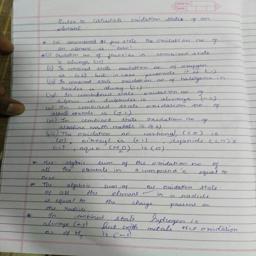 Rules to calculate oxidation state of an
element
In uncombined or free state the oxidation no of
an element is
Oxidation no of fluorine in combined state
is always (-1)
In combined state oxidation no of oxygen
is (-2) but in case peroxide it is (-1)
In combined state oxidation no of halogens in
is always (-1)
In combined state oxidation no of
is always (-2)
In combined state oxidation no of
alkali metals is (+1)
In combined state oxidation no of
alkaline earth metals is (+2)
The oxidation of carbonyl (CO) is
(0), nitrosyl is (+1), cyanide (CN) is
(-1), aqua (H2O) is (0)
The algebric sum of the oxidation no of
all the elements in a compound is equal to
zero
The algebric sum of the oxidation state
of all the element in a radicle
is equal to the charge present on
the radicle
In combined state hydrogen is
always (+1) but with metals the oxidation
no of H is (-1)